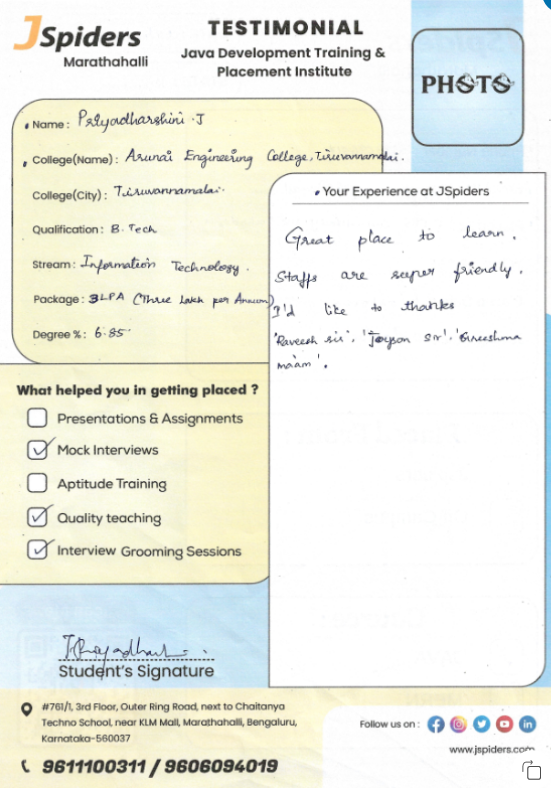 JSpiders
Marathahalli
TESTIMONIAL
Java Development Training &
Placement Institute
PHOTO
Name : Priyadharshini . J
College(Name) : Arunai Engineering College, Tiruvannamalai.
College(City) : Tiruvannamalai.
Qualification : B. Tech
Stream : Information Technology.
Package : 3LPA (Three Lakh per Annum)
Degree % : 6.85
Your Experience at JSpiders
Great place to learn.
Staffs are super friendly.
I'd like to thanks
'Raveesh sir', 'Joyson sir', 'Greeshma
ma'am'.
What helped you in getting placed ?
Presentations & Assignments
Mock Interviews
Aptitude Training
Quality teaching
Interview Grooming Sessions
J Priyadharsh
Student's Signature
#761/1, 3rd Floor, Outer Ring Road, next to Chaitanya
Techno School, near KLM Mall, Marathahalli, Bengaluru,
Karnataka-560037
9611100311 / 9606094019
Follow us on :
www.jspiders.com